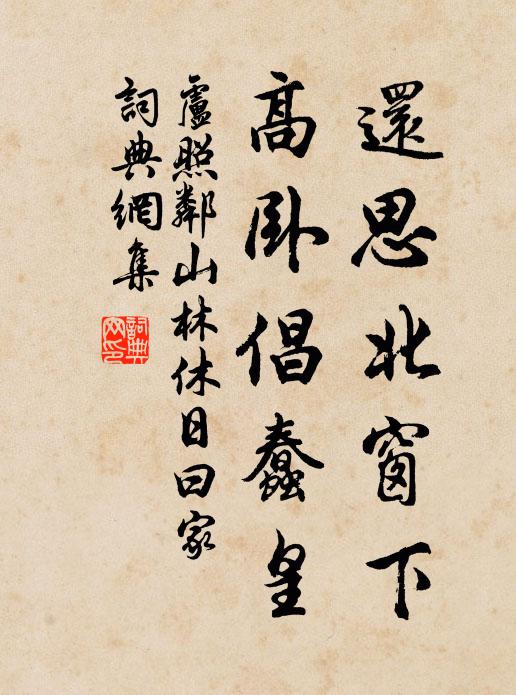 還思北窗下
高卧倡蠢皇
盧照鄰山林休日曰家
詞典網集
詞典
网印